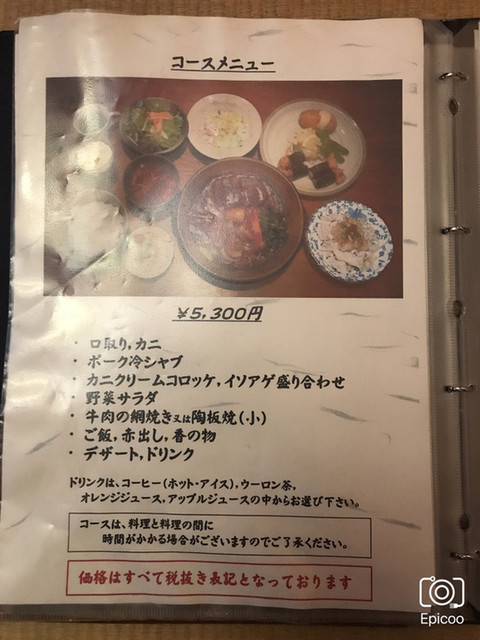 コースメニュー
¥5,300円
・ 口取り,カニ
・ ポーク冷シャブ
・ カニクリームコロッケ,イソアゲ盛り合わせ
・ 野菜サラダ
・ 牛肉の網焼き又は陶板焼(小)
・ ご飯,赤出し,香の物
・ デザート,ドリンク
ドリンクは、コーヒー(ホット・アイス),ウーロン茶,
オレンジジュース,アップルジュースの中からお選び下さい。
コースは、料理と料理の間に
時間がかかる場合がございますのでご了承ください。
価格はすべて税抜き表記となっております
Epicoo